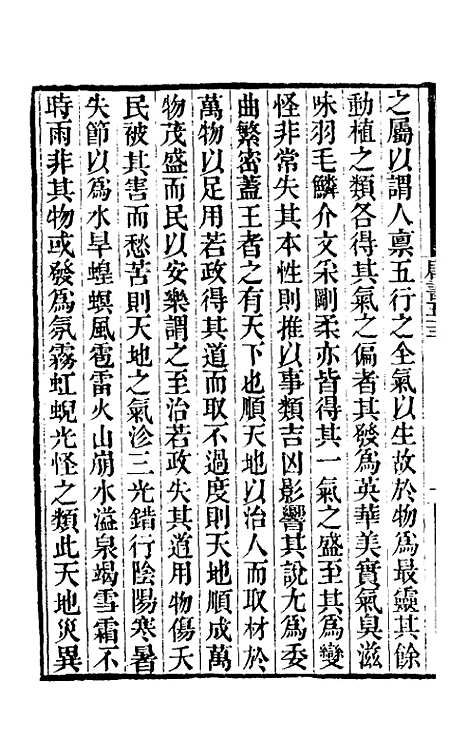 之屬以謂人稟五行之全氣以生故於物爲最靈其餘
動植之類各得其氣之偏者其發爲英華美實氣臭滋
味羽毛鱗介文采剛柔亦皆得其一氣之盛至其爲變
怪非常失其本性則推以事類吉凶影響其說尤爲委
曲繁密蓋王者之有天下也順天地以治人而取材於
萬物以足用若政得其道而取不過度則天地順成萬
物茂盛而民以安樂謂之至治若政失其道用物傷夭
民被其害而愁苦則天地之氣沴三光錯行陰陽寒暑
失節以爲水旱蝗螟風雹雷火山崩水溢泉竭雪霜不
時雨非其物或發爲氛霧虹蜺光怪之類此天地災異